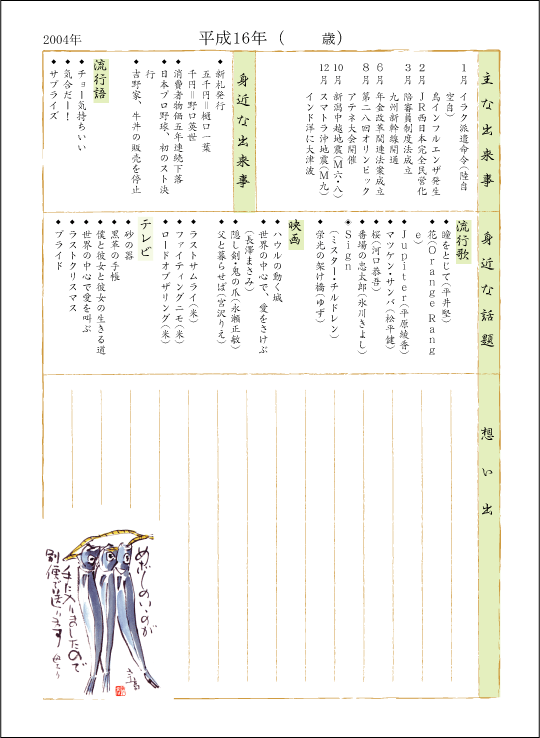 2004年
平成16年（　　歳）
主な出来事
1月　イラク派遣命令（陸自
空自）
鳥インフルエンザ発生
2月　ＪＲ西日本完全民営化
3月　陪審員制度法成立
九州新幹線開通
6月　年金改革関連法案成立
8月　第二八回オリンピック
アテネ大会開催
10月　新潟中越地震（Ｍ六・八）
12月　スマトラ沖地震（Ｍ九）
インド洋に大津波
身近な出来事
◆新札発行
五千円＝樋口一葉
千円＝野口英世
◆消費者物価五年連続下落
◆日本プロ野球、初のスト決
行
◆吉野家、牛丼の販売を停止
流行語
◆チョー気持ちいい
◆気合だー！
◆サプライズ
身近な話題
流行歌
◆瞳をとじて（平井堅）
◆花（Ｏｒａｎｇｅ Ｒａｎｇ
ｅ）
◆Ｊｕｐｉｔｅｒ（平原綾香）
◆マツケン・サンバ（松平健）
◆桜（河口恭吾）
◆番場の忠太郎（氷川きよし）
◆Ｓｉｇｎ
（ミスター・チルドレン）
◆栄光の架け橋（ゆず）
映画
◆ハウルの動く城
◆世界の中心で、愛をさけぶ
（長澤まさみ）
◆隠し剣・鬼の爪（永瀬正敏）
◆父と暮らせば（宮沢りえ）
◆ラストサムライ（米）
◆ファイティングニモ（米）
◆ロードオブザリング（米）
テレビ
◆砂の器
◆黒革の手帳
◆僕と彼女と彼女の生きる道
◆世界の中心で愛を叫ぶ
◆ラストクリスマス
◆プライド
想い出
めざしのいいのが
手に入りましたので
別便で送ります